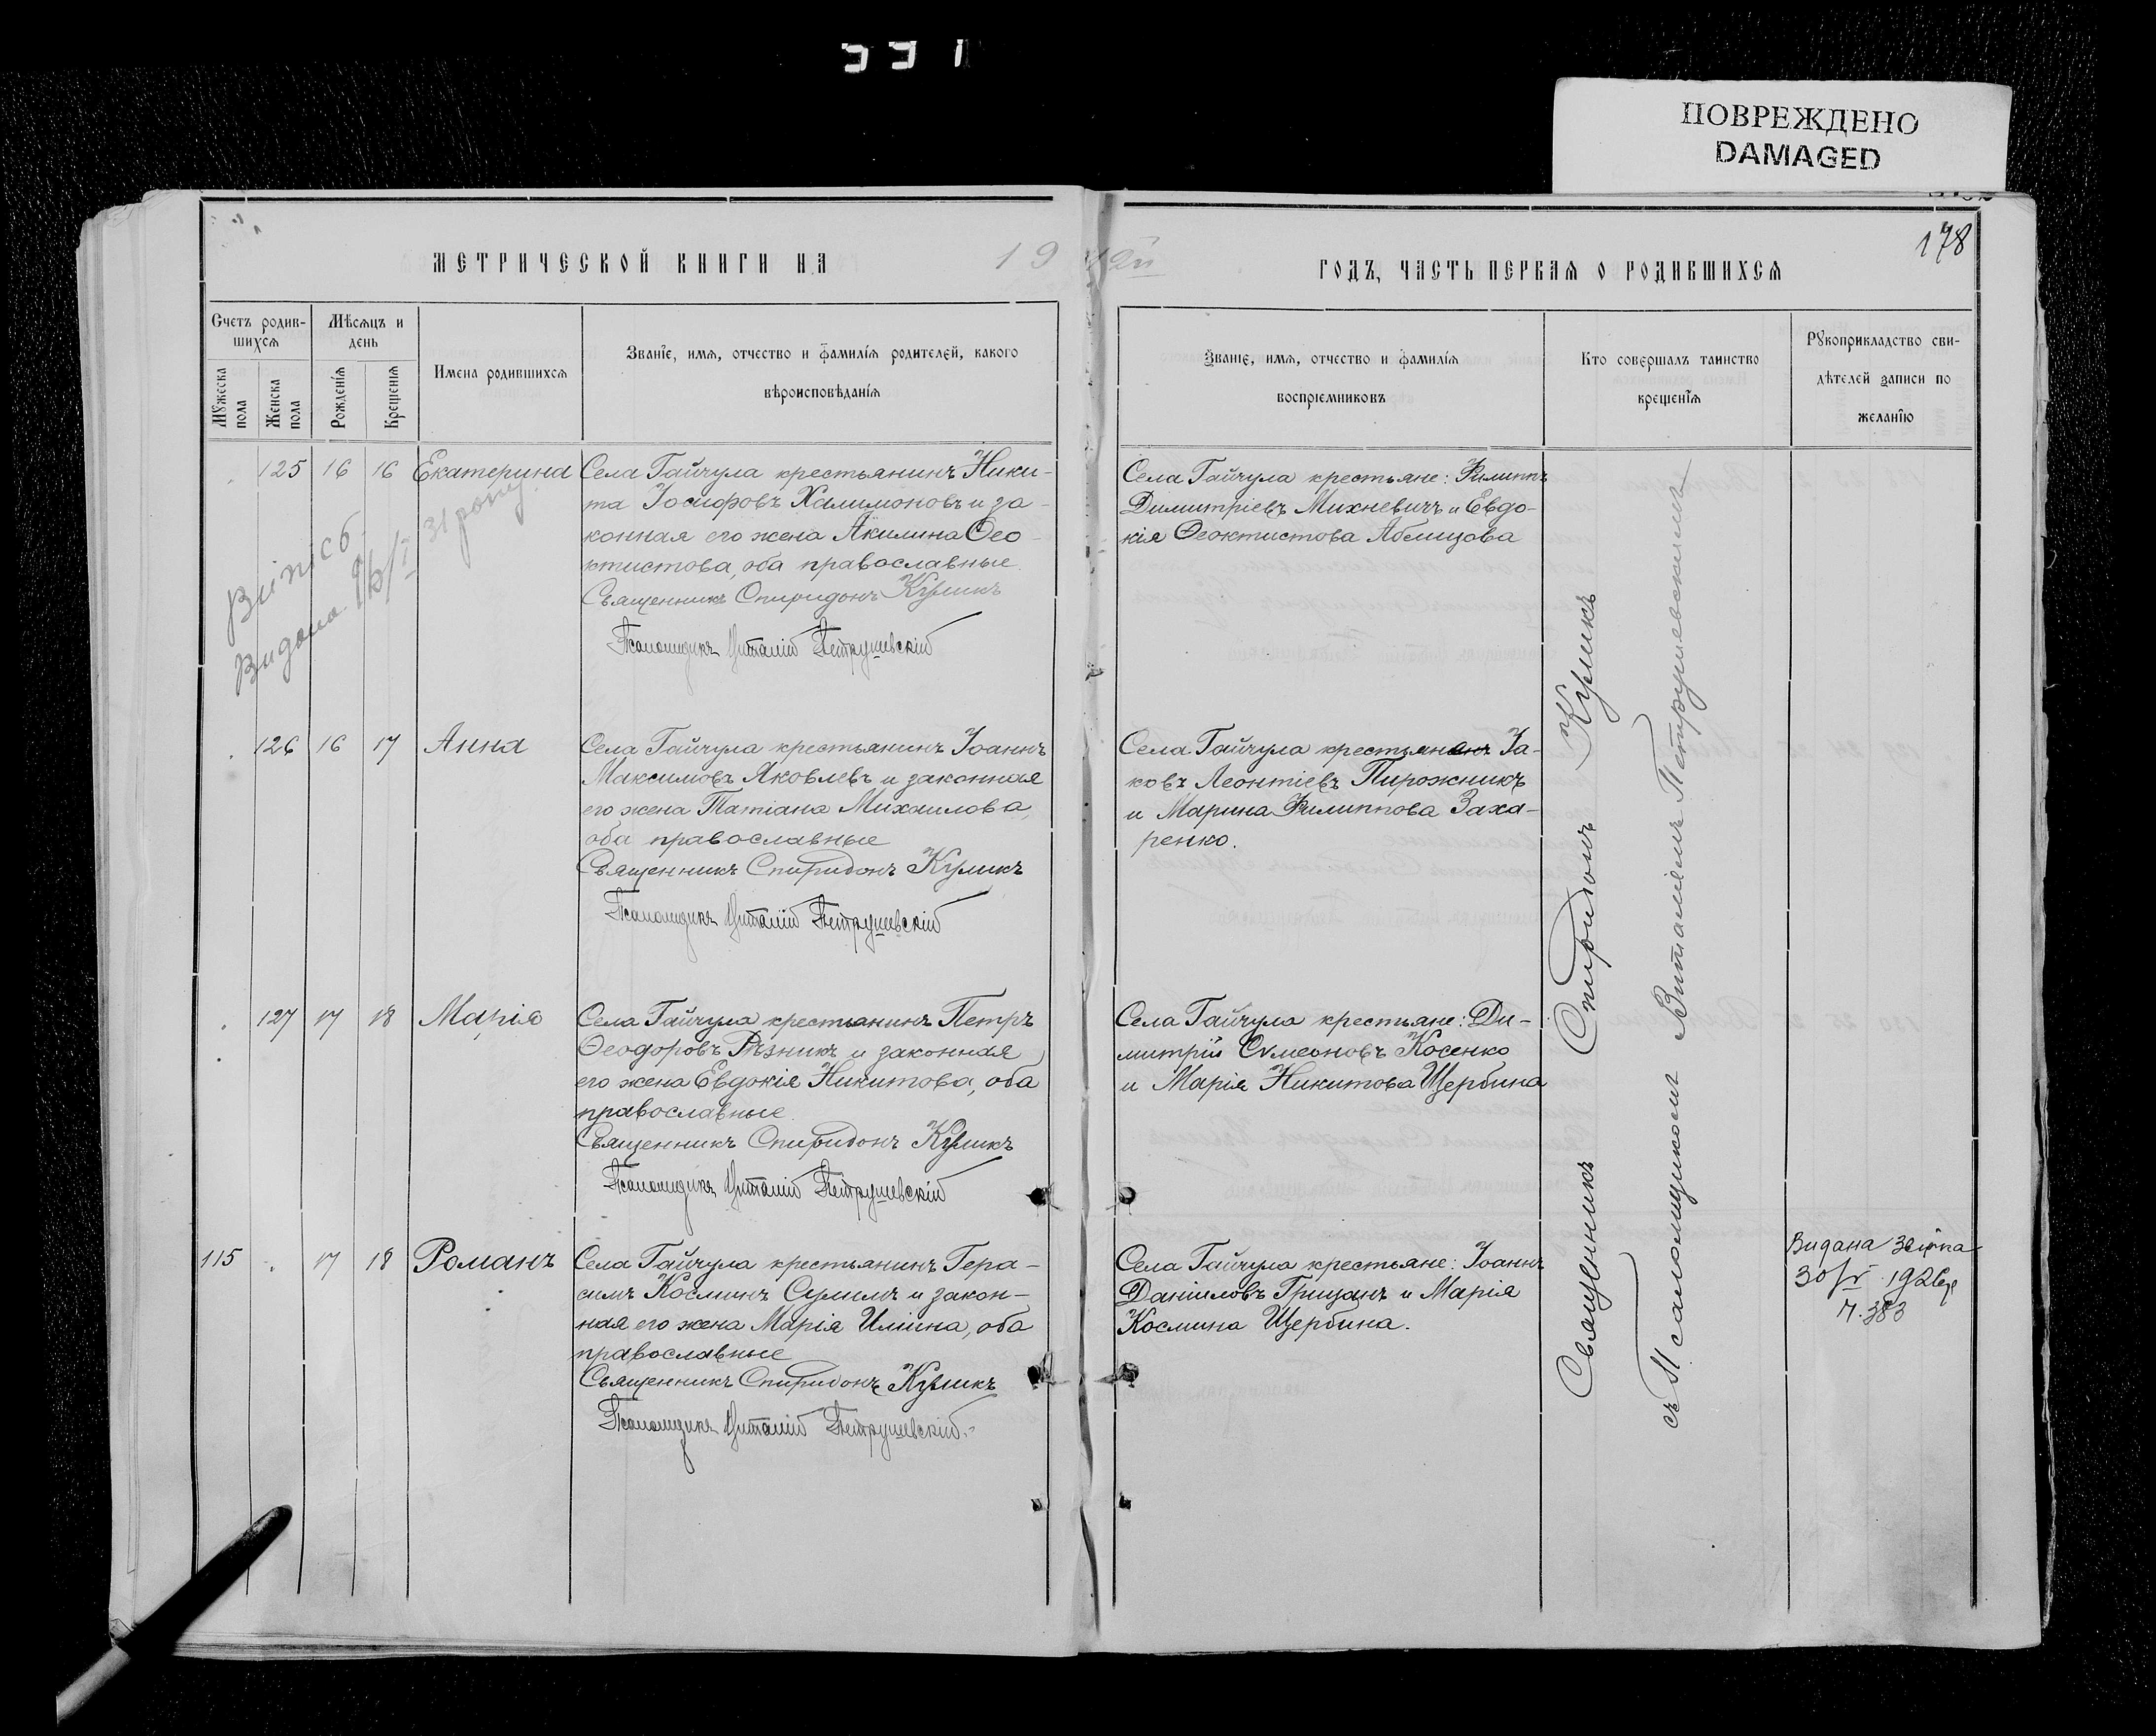 331
ПОВРЕЖДЕНО
DAMAGED
178
МЕТРИЧЕСКОЙ КНИГИ НА 19
12й ГОДЪ, ЧАСТЬ ПЕРВАЯ О РОДИВШИХСЯ
Счетъ родив-
шихся
Мужеска
пола
Женска
пола
Мѣсяцъ и
день
Рожденія
Крещенія
Имена родившихся
Званіе, имя, отчество и фамилія родителей, какого
вѣроисповѣданія
Званіе, имя, отчество и фамилія
воспріемниковъ
Кто совершалъ таинство
крещенія
Рукоприкладство сви-
дѣтелей записи по
желанію
125 16 16 Екатерина
Села Гайчула крестьянинъ Ники-
та Іосифовъ Халимоновъ и за-
конная его жена Акилина Ѳео-
ктистова, оба православные
Священникъ Спиридонъ Куликъ
Псаломщикъ Виталій Петрушевскій
Села Гайчула крестьяне: Филиппъ
Димитріевъ Михневичъ и Евдо-
кія Ѳеоктистова
Видана 31 року
126 16 17 Анна
Села Гайчула крестьянинъ Іоаннъ
Максимовъ Яковлевъ и законная
его жена Татіана Михаилова,
оба православные
Священникъ Спиридонъ Куликъ
Псаломщикъ Виталій Петрушевскій
Села Гайчула Іа-
ковъ Леонтіевъ Пирожникъ
и Марина Филиппова Заха-
ренко.
127 17 18 Марія
Села Гайчула крестьянинъ Петръ
Ѳеодоровъ Рѣзникъ и законная
его жена Евдокія Никитова, оба
православные
Священникъ Спиридонъ Куликъ
Псаломщикъ Виталій Петрушевскій
Села Гайчула крестьяне: Ди-
митрій Сѵмеоновъ Косенко
и Марія Никитова Щербина
115 17 18 Романъ
Села Гайчула крестьянинъ Гера-
симъ Косминъ Сулимъ и закон-
ная его жена Марія Иліина, оба
православные
Священникъ Спиридонъ Куликъ
Псаломщикъ Виталій Петрушевскій
Села Гайчула крестьяне: Іоаннъ
Даніиловъ Грицанъ и Марія
Космина Щербина.
Священникъ Спиридонъ Куликъ
съ Псаломщикомъ Виталіемъ Петрушевскимъ
Видана
30/V 1926р
383